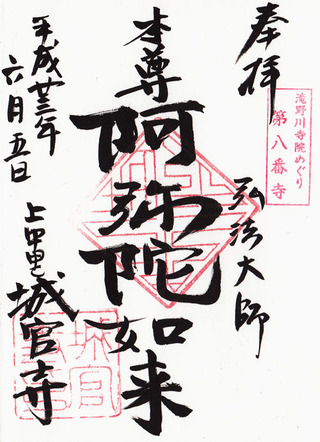 奉拝
滝野川寺院めぐり
第八番寺
弘法大師
本尊
阿弥陀如来
平成廿三年
六月五日
上中里
城官寺
城官
寺